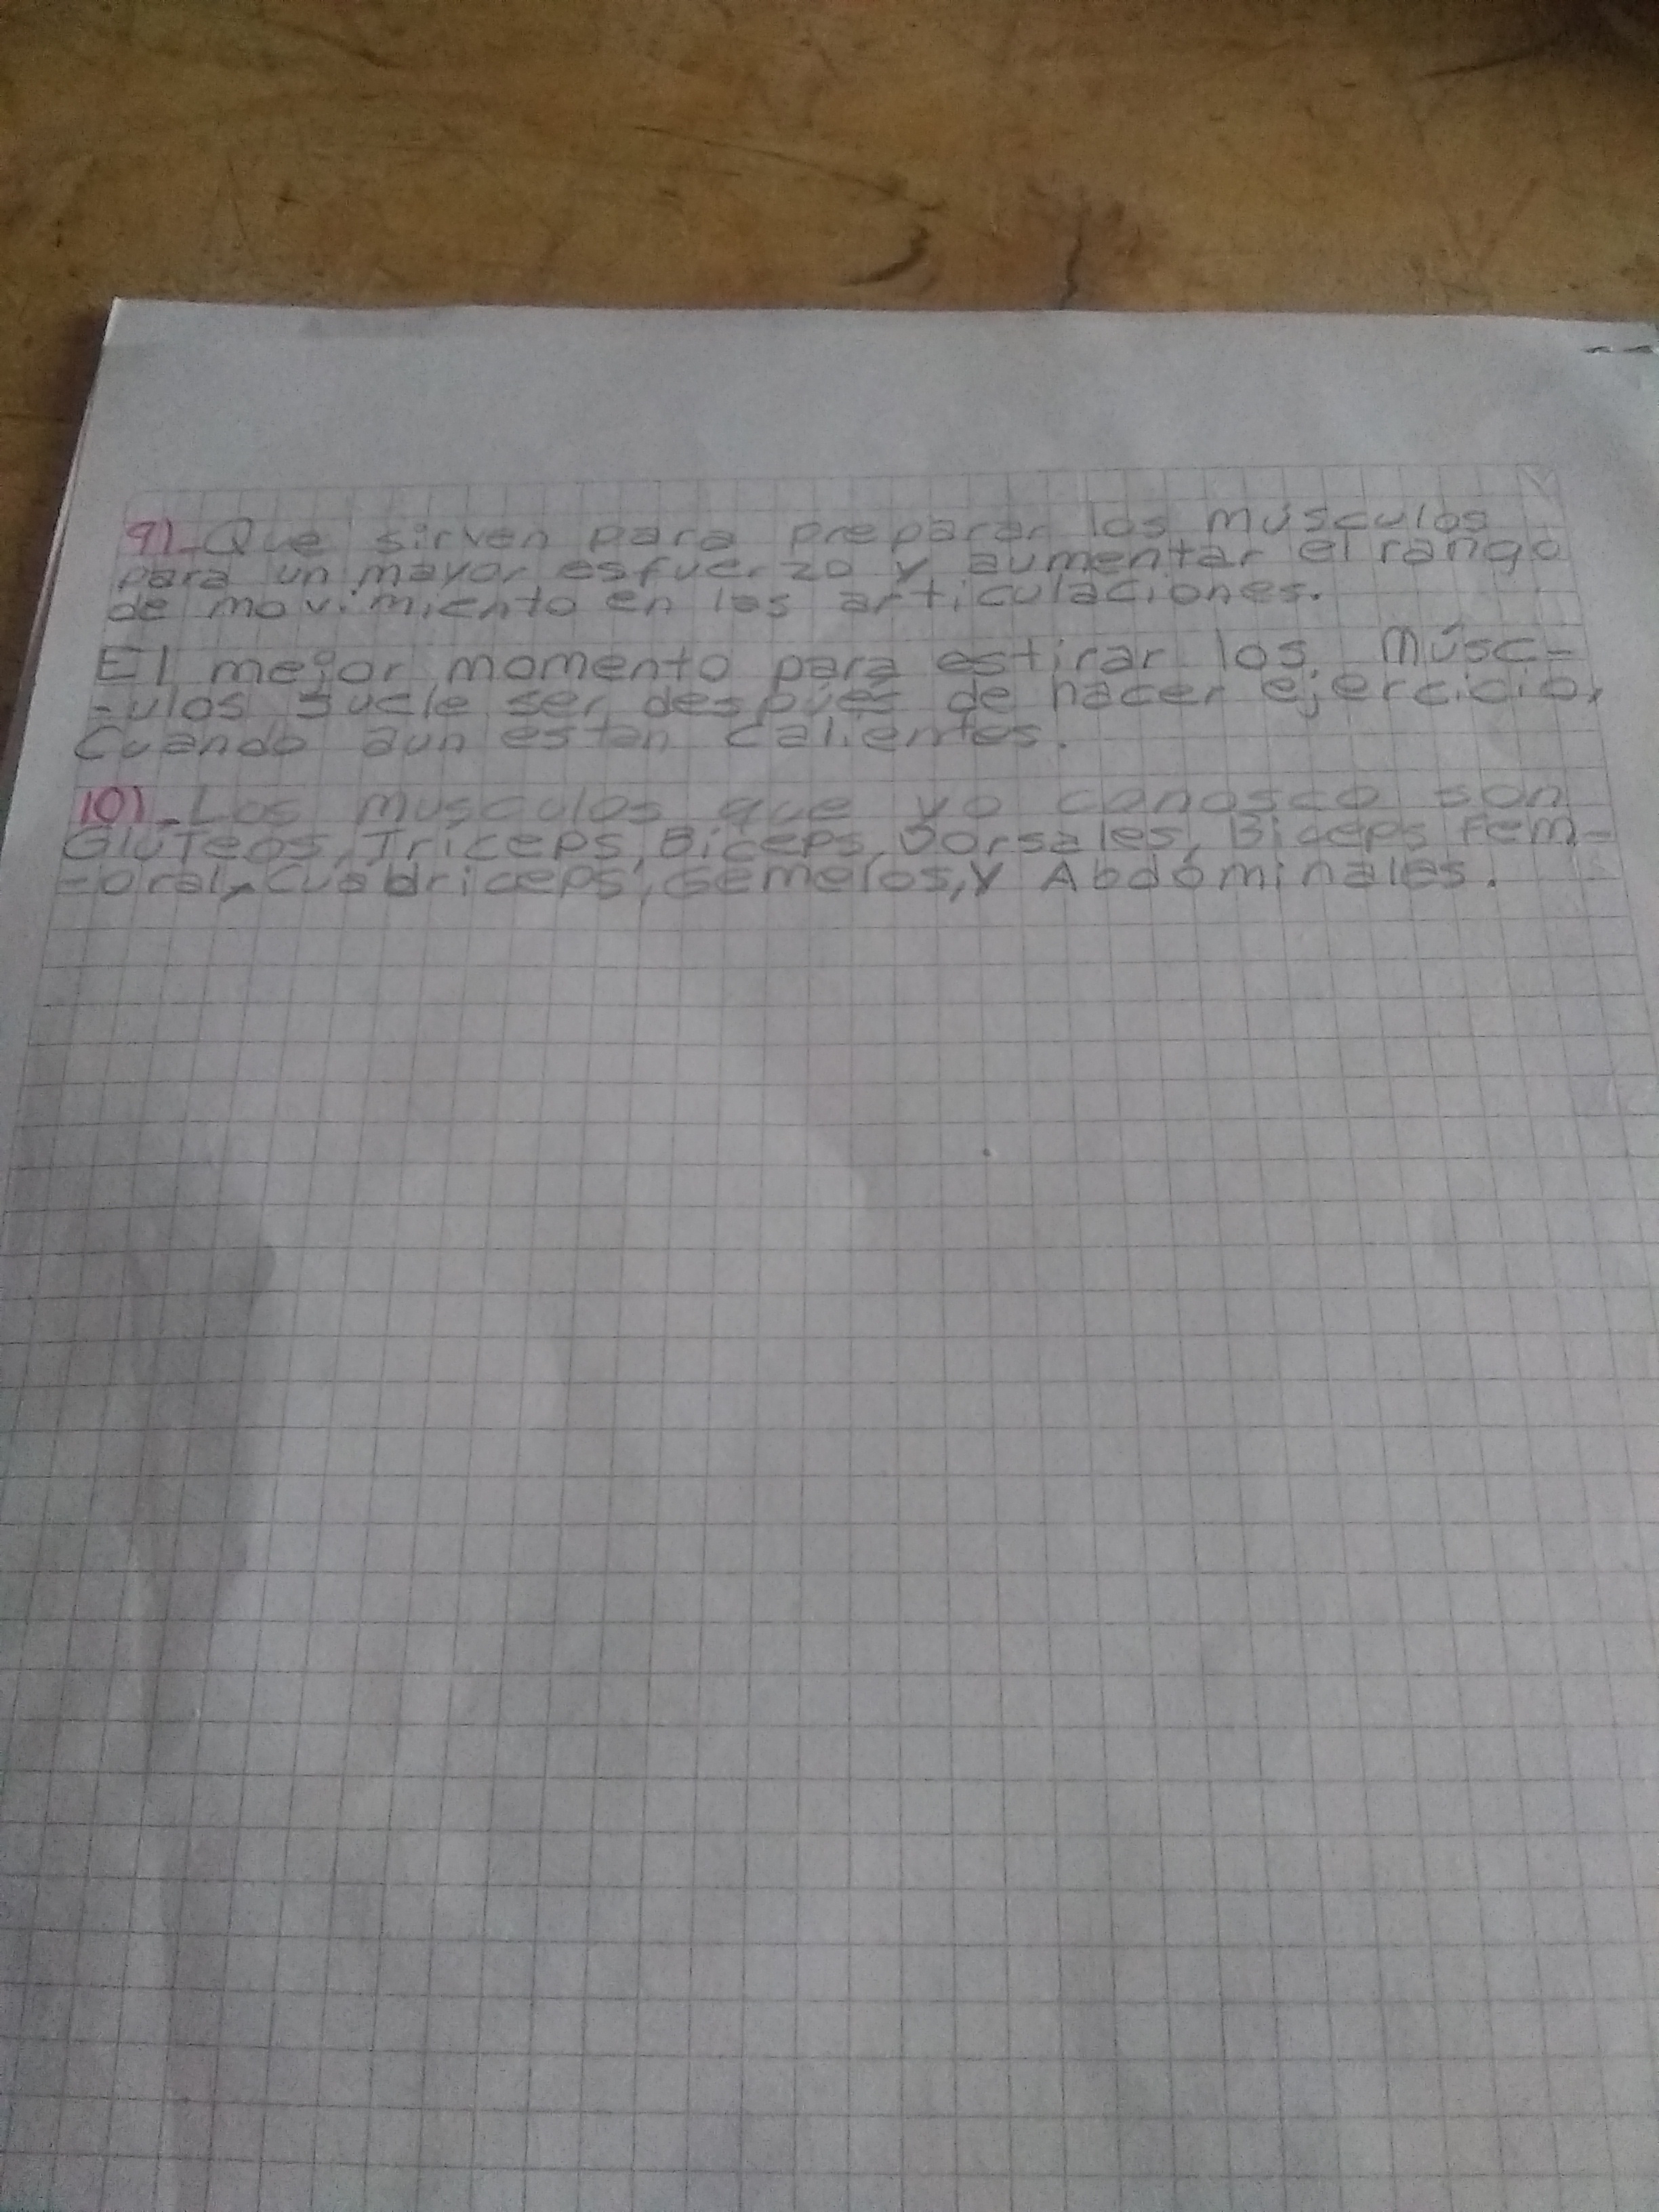 9).-Que sirven para preparar los músculos
para un mayor esfuerzo y aumentar el rango
de movimiento en las articulaciones.
El mejor momento para estirar los Músc-
-ulos suele ser despúes de hacer ejercicio,
Cuando aun estan calientes.
10).-Los musculos que yo conosco son
Glúteos, Triceps, Biceps, Dorsales, Biceps Fem-
-oral, Cuadriceps, Gemelos, y Abdominales.